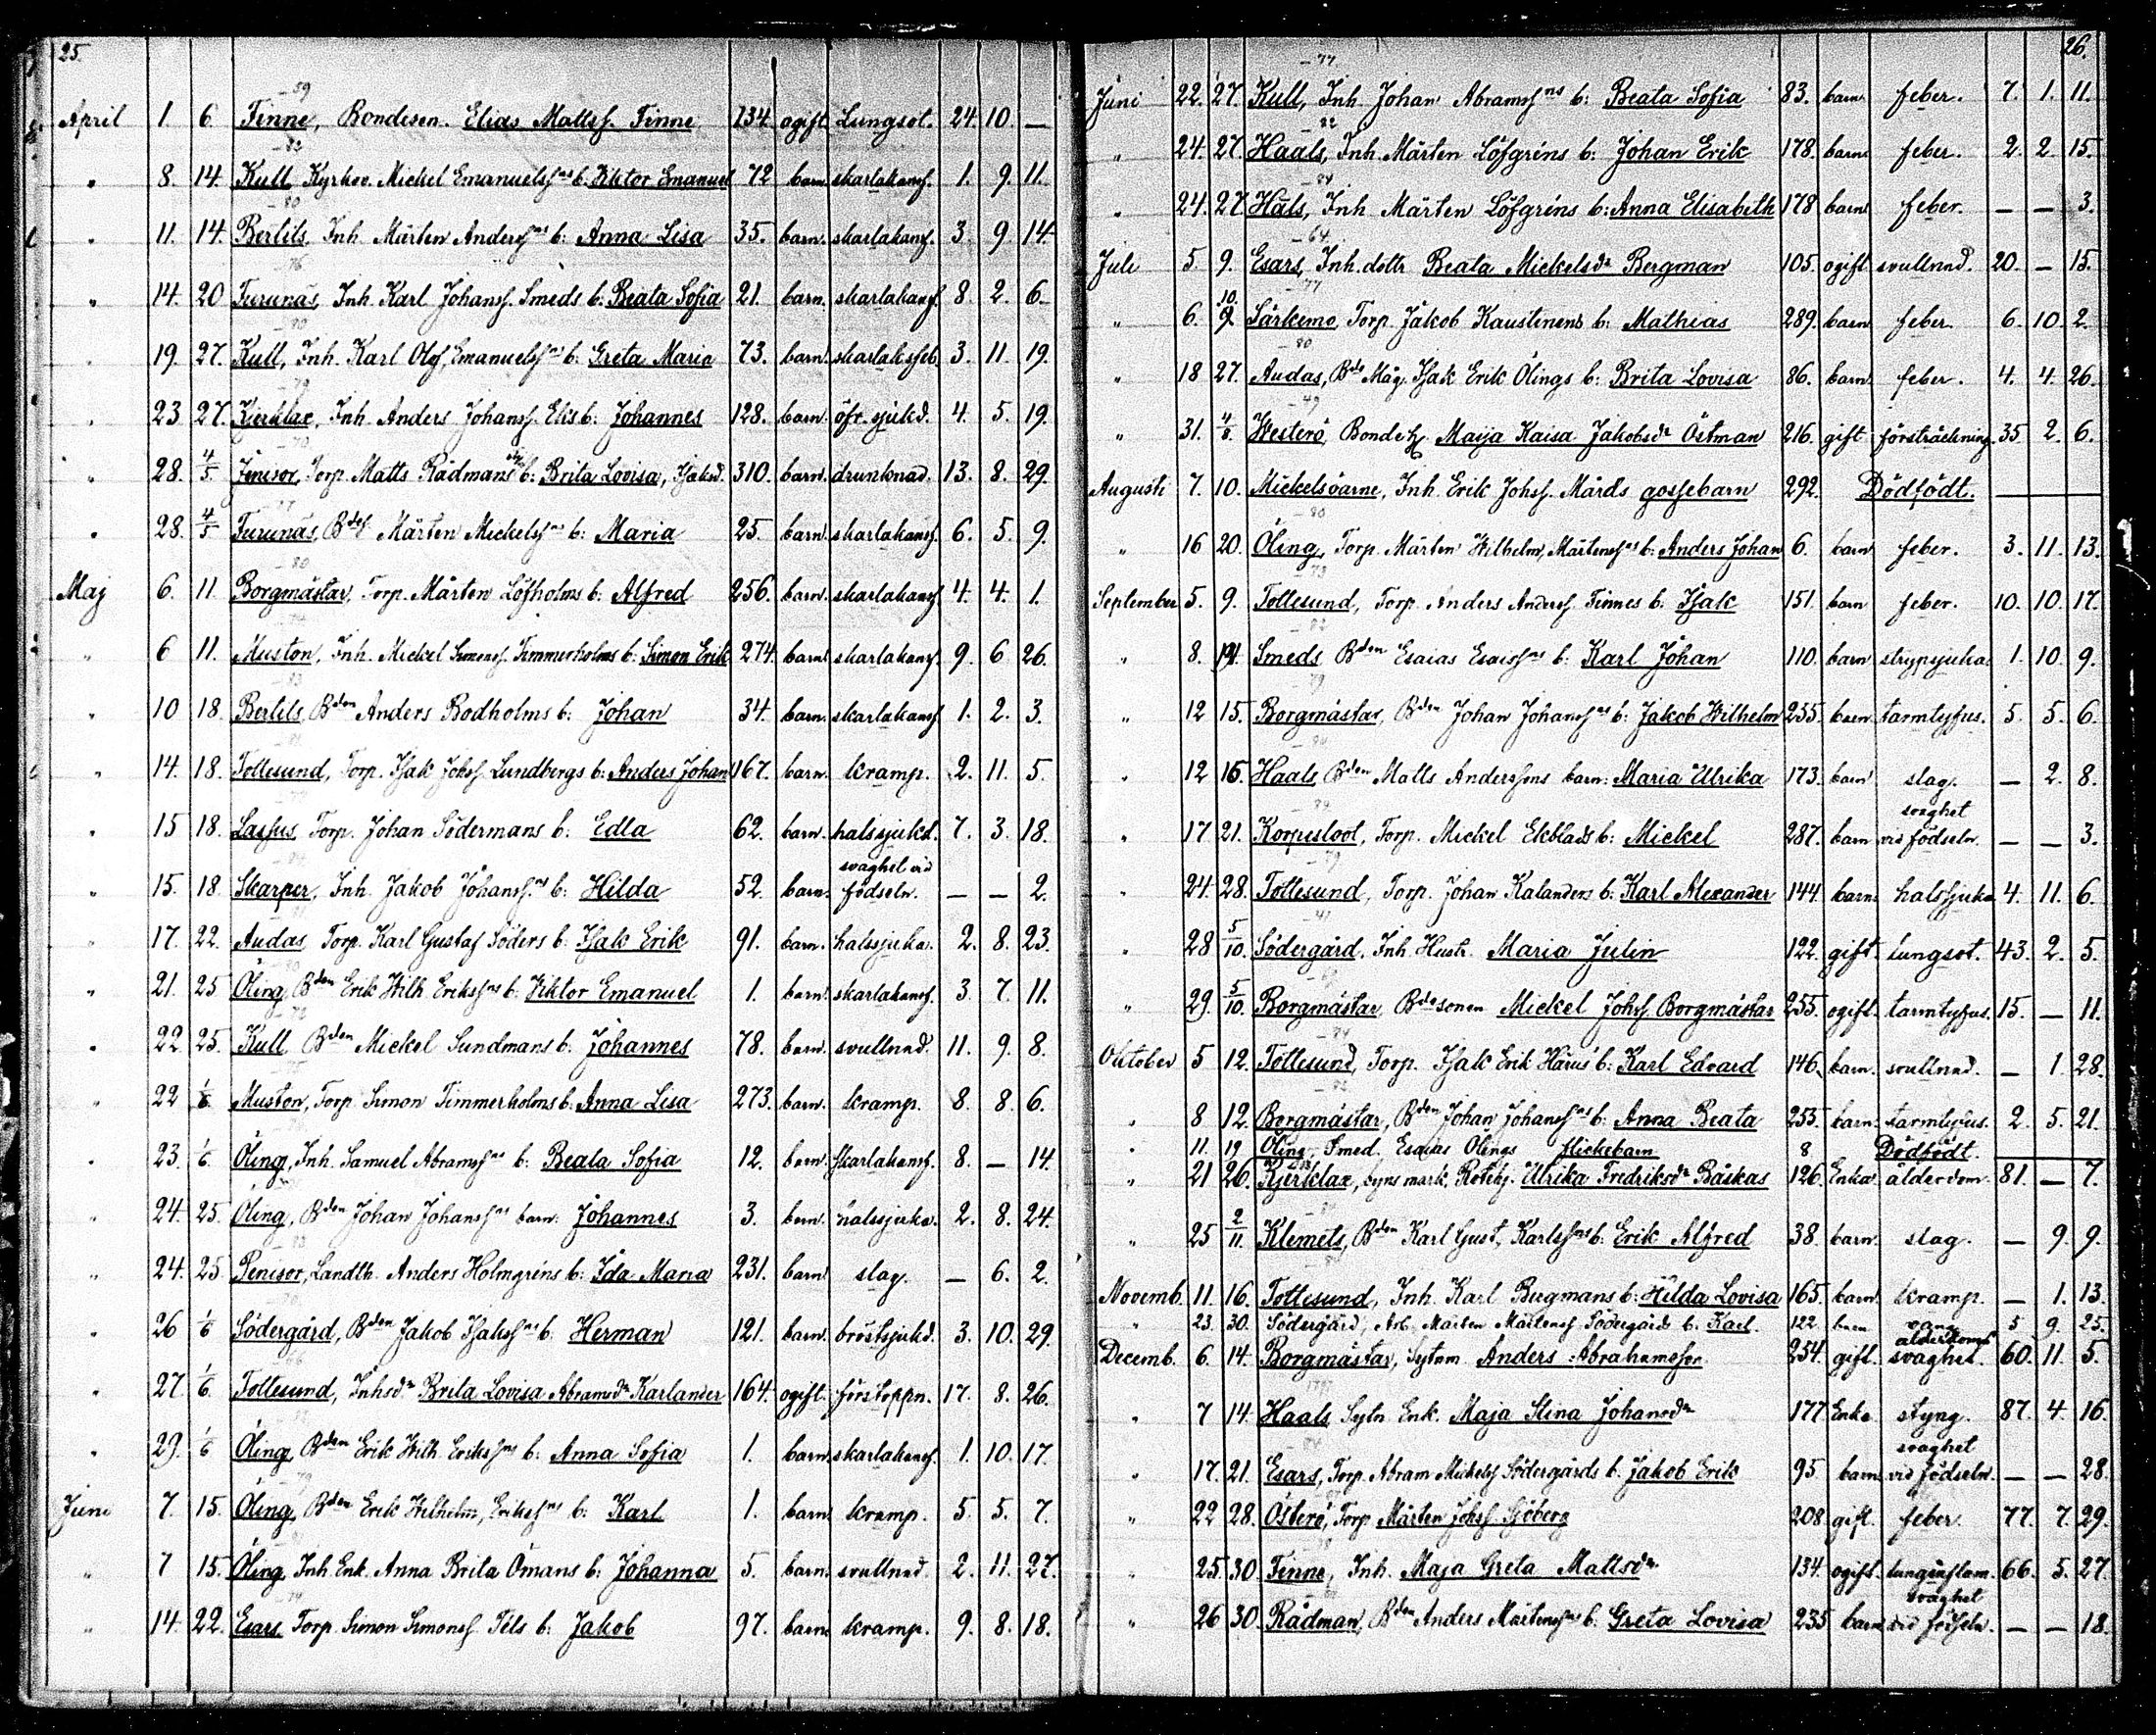 25.
- 59
April 1. 6. Finne, Bondeson. Elias Mattsf. Finne 134. ogift Lungsot. 24. 10. —
- 82
" 8. 14. Kull Kyrkov. Mickel Emanuelsfns b. Viktor Emanuel 72 barn skarlakansf. 1. 9. 11.
- 80
" 11. 14. Bertils, Inh. Mårten Andersfns b: Anna Lisa 35. barn. skarlakansf. 3. 9. 14.
- 76
" 14. 20 Furunäs, Inh. Karl Johansf. Smeds b: Beata Sofia 21. barn. skarlakansf. 8. 2. 6.
- 80
" 19. 27. Kull, Inh. Karl Olof, Emanuelsfns b: Greta Maria 73. barn. skarlaksfeb. 3. 11. 19.
- 79
" 23 27. Kjerklax, Inh. Anders Johansf. Eks b: Johannes 128. barn. öfr. sjukd. 4. 5. 19.
- 70
" 28. 4/5. Jöusor, Torp. Matts Rådmans b: Brita Lovisa, Isaksd. 310. barn. drunknad. 13. 8. 29.
- 77
" 28. 4/5 Furunäs, Bdes Mårten Mickelsfns b: Maria 25. barn. skarlakansf. 6. 5. 9.
- 80
Maj 6. 11. Borgmästar, Torp. Mårten Löfholms b: Alfred 256. barn. skarlakansf. 4. 4. 1.
" 6 11. Muston, Inh. Mickel Simonsf. Timmerholms b: Simon Erik 274. barn. skarlakansf. 9. 6. 26.
- 83
" 10 18. Bertils, Bden Anders Bodholms b: Johan 34. barn. skarlakansf. 1. 2. 3.
" 14. 18. Tottesund, Torp. Isak Johsf. Lundbergs b: Anders Johan 167. barn. kramp. 2. 11. 5.
" 15 18. Lassus, Torp. Johan Södermans b: Edla 62. barn. halssjukd. 7. 3. 18.
" 15. 18. Skarper, Inh. Jakob Johansfns b: Hilda 52. barn. svaghet vid födseln. — — 2.
" 17. 22. Audas, Torp. Karl Gustaf Söders b: Isak Erik 91. barn. halssjuka. 2. 8. 23.
- 80
" 21. 25 Öling, Bden Erik Wilh. Eriksfns b: Viktor Emanuel 1. barn. skarlakansf. 3. 7. 11.
- 72
" 22 25. Kull, Bden Mickel Sundmans b: Johannes 78. barn. svullnad. 11. 9. 8.
" 22 1/6. Muston, Torp. Simon Timmerholms b: Anna Lisa 273. barn. kramp. 8. 8. 6.
" 23. 1/6. Öling, Inh. Samuel Abramsfns b: Beata Sofia 12. barn. skarlakansf. 8. — 14.
" 24. 25. Öling, Bden Johan Johansfns barn: Johannes 3. barn. halssjuka. 2. 8. 24.
- 83
" 24. 25 Penisor, Landth. Anders Holmgréns b: Ida Maria 231. barn slag. — 6. 2.
" 26 1/6 Södergård, Bden Jakob Isaksfns b: Herman 121. barn. bröstsjukd. 3. 10. 29.
- 66
" 27. 1/6. Tottesund, Inhsdr Brita Lovisa Abramsdr Karlander 164. ogift. förstoppn. 17. 8. 26.
" 29. 1/6 Öling, Bden Erik Wilh. Eriksfns b: Anna Sofia 1. barn. skarlakansf. 1. 10. 17.
- 79
Juni 7. 15. Öling, Bden Erik Wilhelm, Eriksfns b: Karl 1. barn. kramp. 5. 5. 7.
" 7 15. Öling, Inh. Enk. Anna Brita Ömans b: Johanna 5. barn. svullnad. 2. 11. 27.
- 74
" 14. 22. Esars Torp. Simon Simonsf. Téls b: Jakob 97. barn kramp. 9. 8. 18.
26.
- 77
Juni 22. 27. Kull, Inh. Johan Abramsfns b: Beata Sofia 83. barn. feber. 7. 1. 11.
- 82
" 24. 27. Haals, Inh. Mårten Löfgréns b: Johan Erik 178. barn feber. 2. 2. 15.
- 84
" 24. 27. Håls, Inh Mårten Löfgréns b: Anna Elisabeth 178 barn feber. — — 3.
- 64
Juli 5. 9. Esars, Inh. dottr Beata Mickelsdr Bergman 105. ogift svullnad. 20. — 15.
- 77
" 6. 10. 9. Särkemo, Torp. Jakob Kaustinens b: Mathias 289. barn feber. 6. 10. 2.
- 80
" 18 27. Audas, Bde Måg. Isak Erik Ölings b: Brita Lovisa 86. barn. feber. 4. 4. 26.
- 49
" 31. 4/8. Westerö, Bonde h. Maija Kaisa Jakobsdr Östman 216. gift försträckning. 35. 2. 6.
Augusti 7. 10. Mickelsörarne, Inh. Erik Johsf. Mårds gossebarn 292. Dödfödt. —
- 80
" 16 20. Öling, Torp. Mårten Wilhelm, Mårtensfns b: Anders Johan 6. barn feber. 3. 11. 13.
- 73
September 5. 9. Tottesund, Torp. Anders Andersf. Finnes b: Isak 151. barn feber. 10. 10. 17.
- 82
" 8. 14. Smeds Bden Esaias Esaiasfns b: Karl Johan 110. barn strypsjuka. 1. 10. 9.
- 79
" 12 15. Borgmästar, Bden Johan Johansfns b: Jakob Wilhelm 255. barn. tarmtyfus. 5. 5. 6.
- 84
" 12 15. Haals, Bden Matts Anderssons barn: Maria Ulrika 173. barn slag. — 2. 8.
" 17 21. Korpuslool, Torp. Mickel Ekblads b: Mickel 287. barn svaghet vid födseln. — — 3.
- 79
" 24. 28. Tottesund, Torp. Johan Kalanders b: Karl Alexander 144. barn. halssjuka. 4. 11. 6.
- 41
" 28 5/10. Södergård. Inh. Hustr. Maria Julin 122. gift. lungsot. 43. 2. 5.
" 29. 5/10. Borgmästar, Bdesonen Mickel Johsf. Borgmästar 255. ogift. tarmtyfus. 15. — 11.
- 84
Oktober 5 12. Tottesund, Torp. Isak Erik Härus b: Karl Edvard 146. barn. svullnad. — 1. 28.
- 82
" 8 12. Borgmästar, Bden Johan Johansfns b: Anna Beata 255. barn. tarmtyfus. 2. 5. 21.
" 11. 19 Öling, Smed. Esaias Ölings flickebarn 8 Dödfödt. —
" 21 26. Kjerklax, byns mark, Rotehj. Ulrika Fredriksdr Båskas 126. Enka ålderdom. 81. — 7.
- 84
" 25 2/11. Klemets, Bden Karl Gust. Karlsfns b: Erik Alfred 38. barn. slag. — 9. 9.
Novemb. 11. 16. Tottesund, Inh. Karl Bergmans b: Hilda Lovisa 165. barn kramp. — 1. 13.
" 23. 30. Södergård, Arb. Mårten Mårtensf Södergårds b. Karl. 122. barn 5 9. 25.
Decemb. 6. 14. Borgmästar, Sytnm Anders Abrahamsson 254. gift. ålderdoms svaghet. 60. 11. 5.
1797
" 7 14. Haals Sytn Enk. Maja Stina Johansdr 177 Enka styng. 87. 4. 16.
- 84
" 17. 21. Esars, Torp. Abram Mickelsf Södergårds b. Jakob Erik 95 barn svaghet vid födseln. — — 28.
" 22 28. Österö, Torp Mårten Johsf Sjöberg 208 gift. feber. 77. 7. 29.
" 25. 30. Finne, Inh. Maja Greta Mattsdr 134. ogift. lunginflam. 66. 5. 27.
" 26 30. Rådman, Bden Anders Mårtensfns b: Greta Lovisa 235 barn svaghet vid födseln. — — 18.